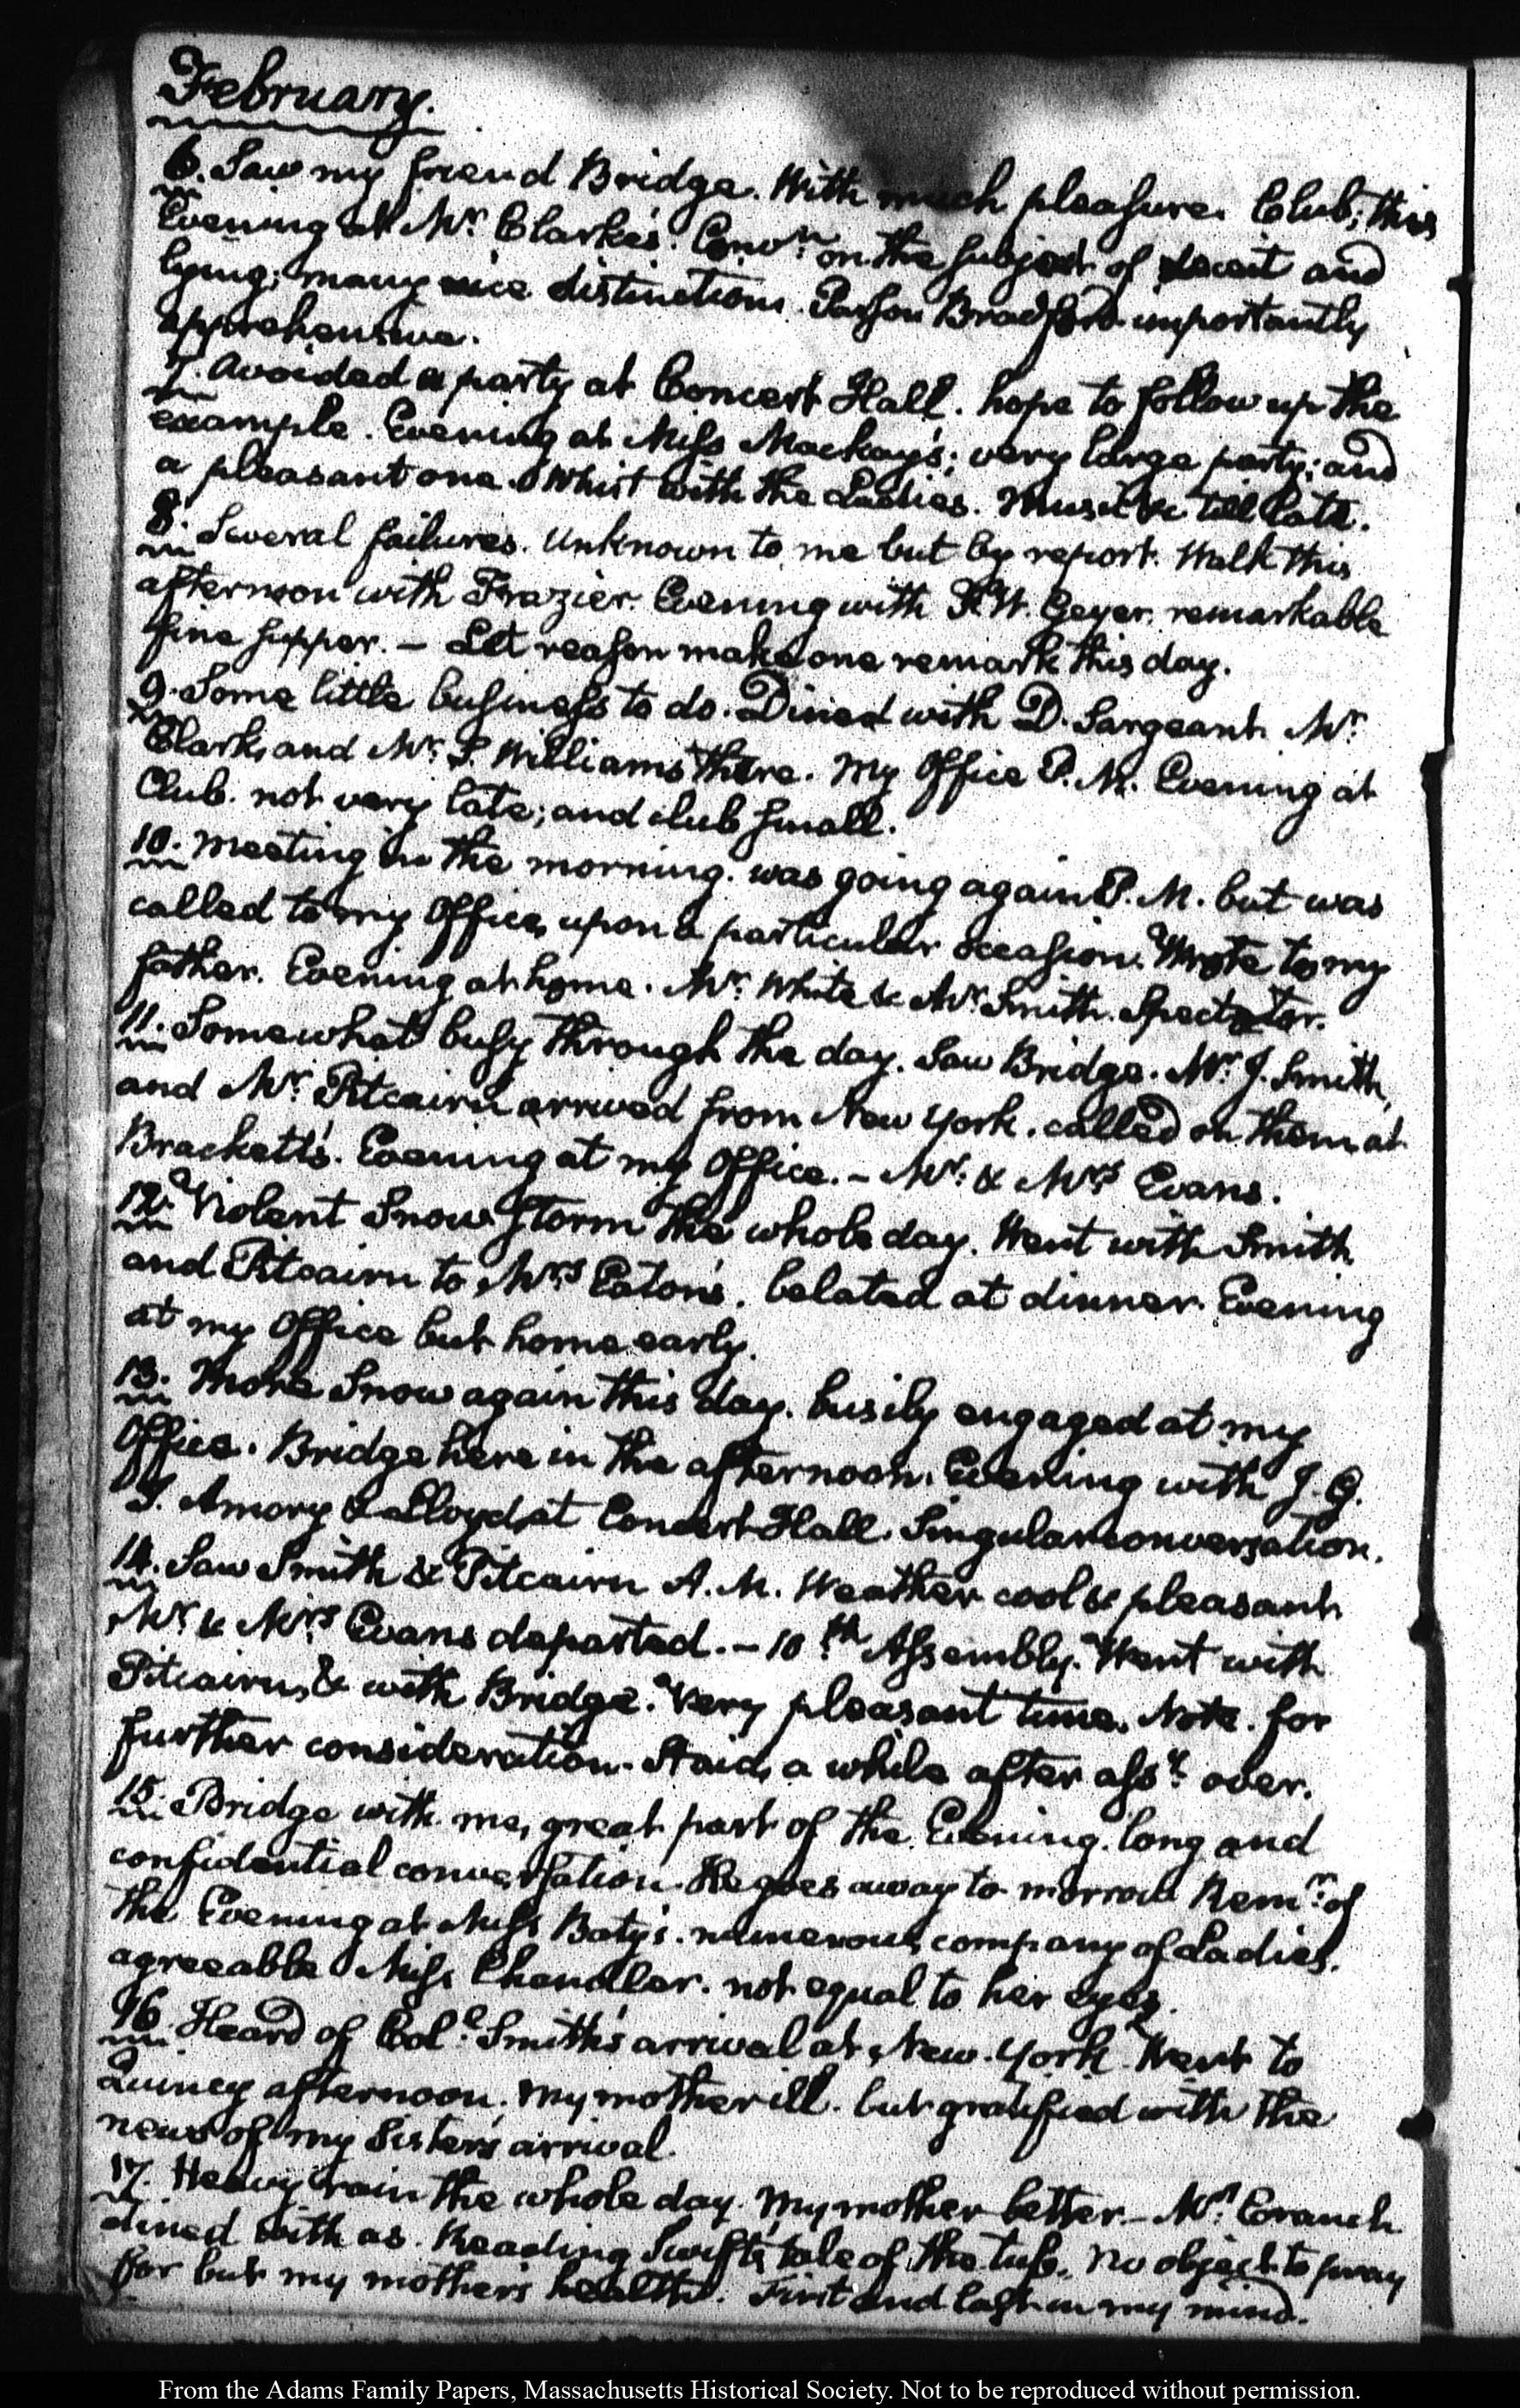 February.
6. Saw my friend Bridge. With much pleasure. Club; this
Evening at Mr. Clarke's. Convn. on the subject of deceit and
lying; many nice distinctions. Parson Bradford importantly
apprehensive.
7. Avoided a party at Concert Hall. hope to follow up the
example. Evening at Miss Mackay's; very large party; and
a pleasant one. Whist with the Ladies. Musick till late.
8. Several failures. Unknown to me but by report. Walk this
afternoon with Frazier. Evening with F. W. Geyer. remarkable
fine supper. – Let reason make one remark this day.
9. Some little business to do. Dined with D. Sargeant. Mr.
Clark, and Mr. S. Williams there. My Office P. M. Evening at
Club. not very late; and club small.
10. Meeting in the morning. was going again P. M. but was
called to my Office, upon a particular occasion. Wrote to my
father. Evening at home. Mr. White & Mr. Smith. Spectator.
11. Somewhat busy through the day. Saw Bridge. Mr. J. Smith,
and Mr. Pitcairn arrived from New York. called on them at
Brackett's. Evening at my Office. – Mr. & Mrs. Evans.
12. Violent Snow storm the whole day. Went with Smith
and Pitcairn to Mrs. Eaton's. belated at dinner. Evening
at my Office but home early.
13. More Snow again this day. busily engaged at my
Office. Bridge here in the afternoon. Evening with J. G.
T. Amory & Lloyd, at Concert Hall. Singular conversation.
14. Saw Smith & Pitcairn A. M. Weather cool & pleasant
Mr. & Mrs. Evans departed. – 10th. Assembly. Went with
Pitcairn, & with Bridge. Very pleasant time. Note. for
further consideration. Staid, a while after assy. over.
15. Bridge with me, great part of the Evening. long and
confidential conversation. He goes away to-morrow Remr. of
the Evening at Miss Baty's. numerous company of Ladies.
agreeable Miss Chandler. not equal to her eyes.
16. Heard of Col. Smith's arrival at New-York. Went to
Quincy afternoon. My mother ill. but gratified with the
news of my Sister's arrival.
17. Heavy rain the whole day. My mother better. – Mr. Cranch
dined with us. Reading Swift's tale of the tub. No object to pray
for but my mother's health. First and last in my mind.
From the Adams Family Papers, Massachusetts Historical Society. Not to be reproduced without permission.